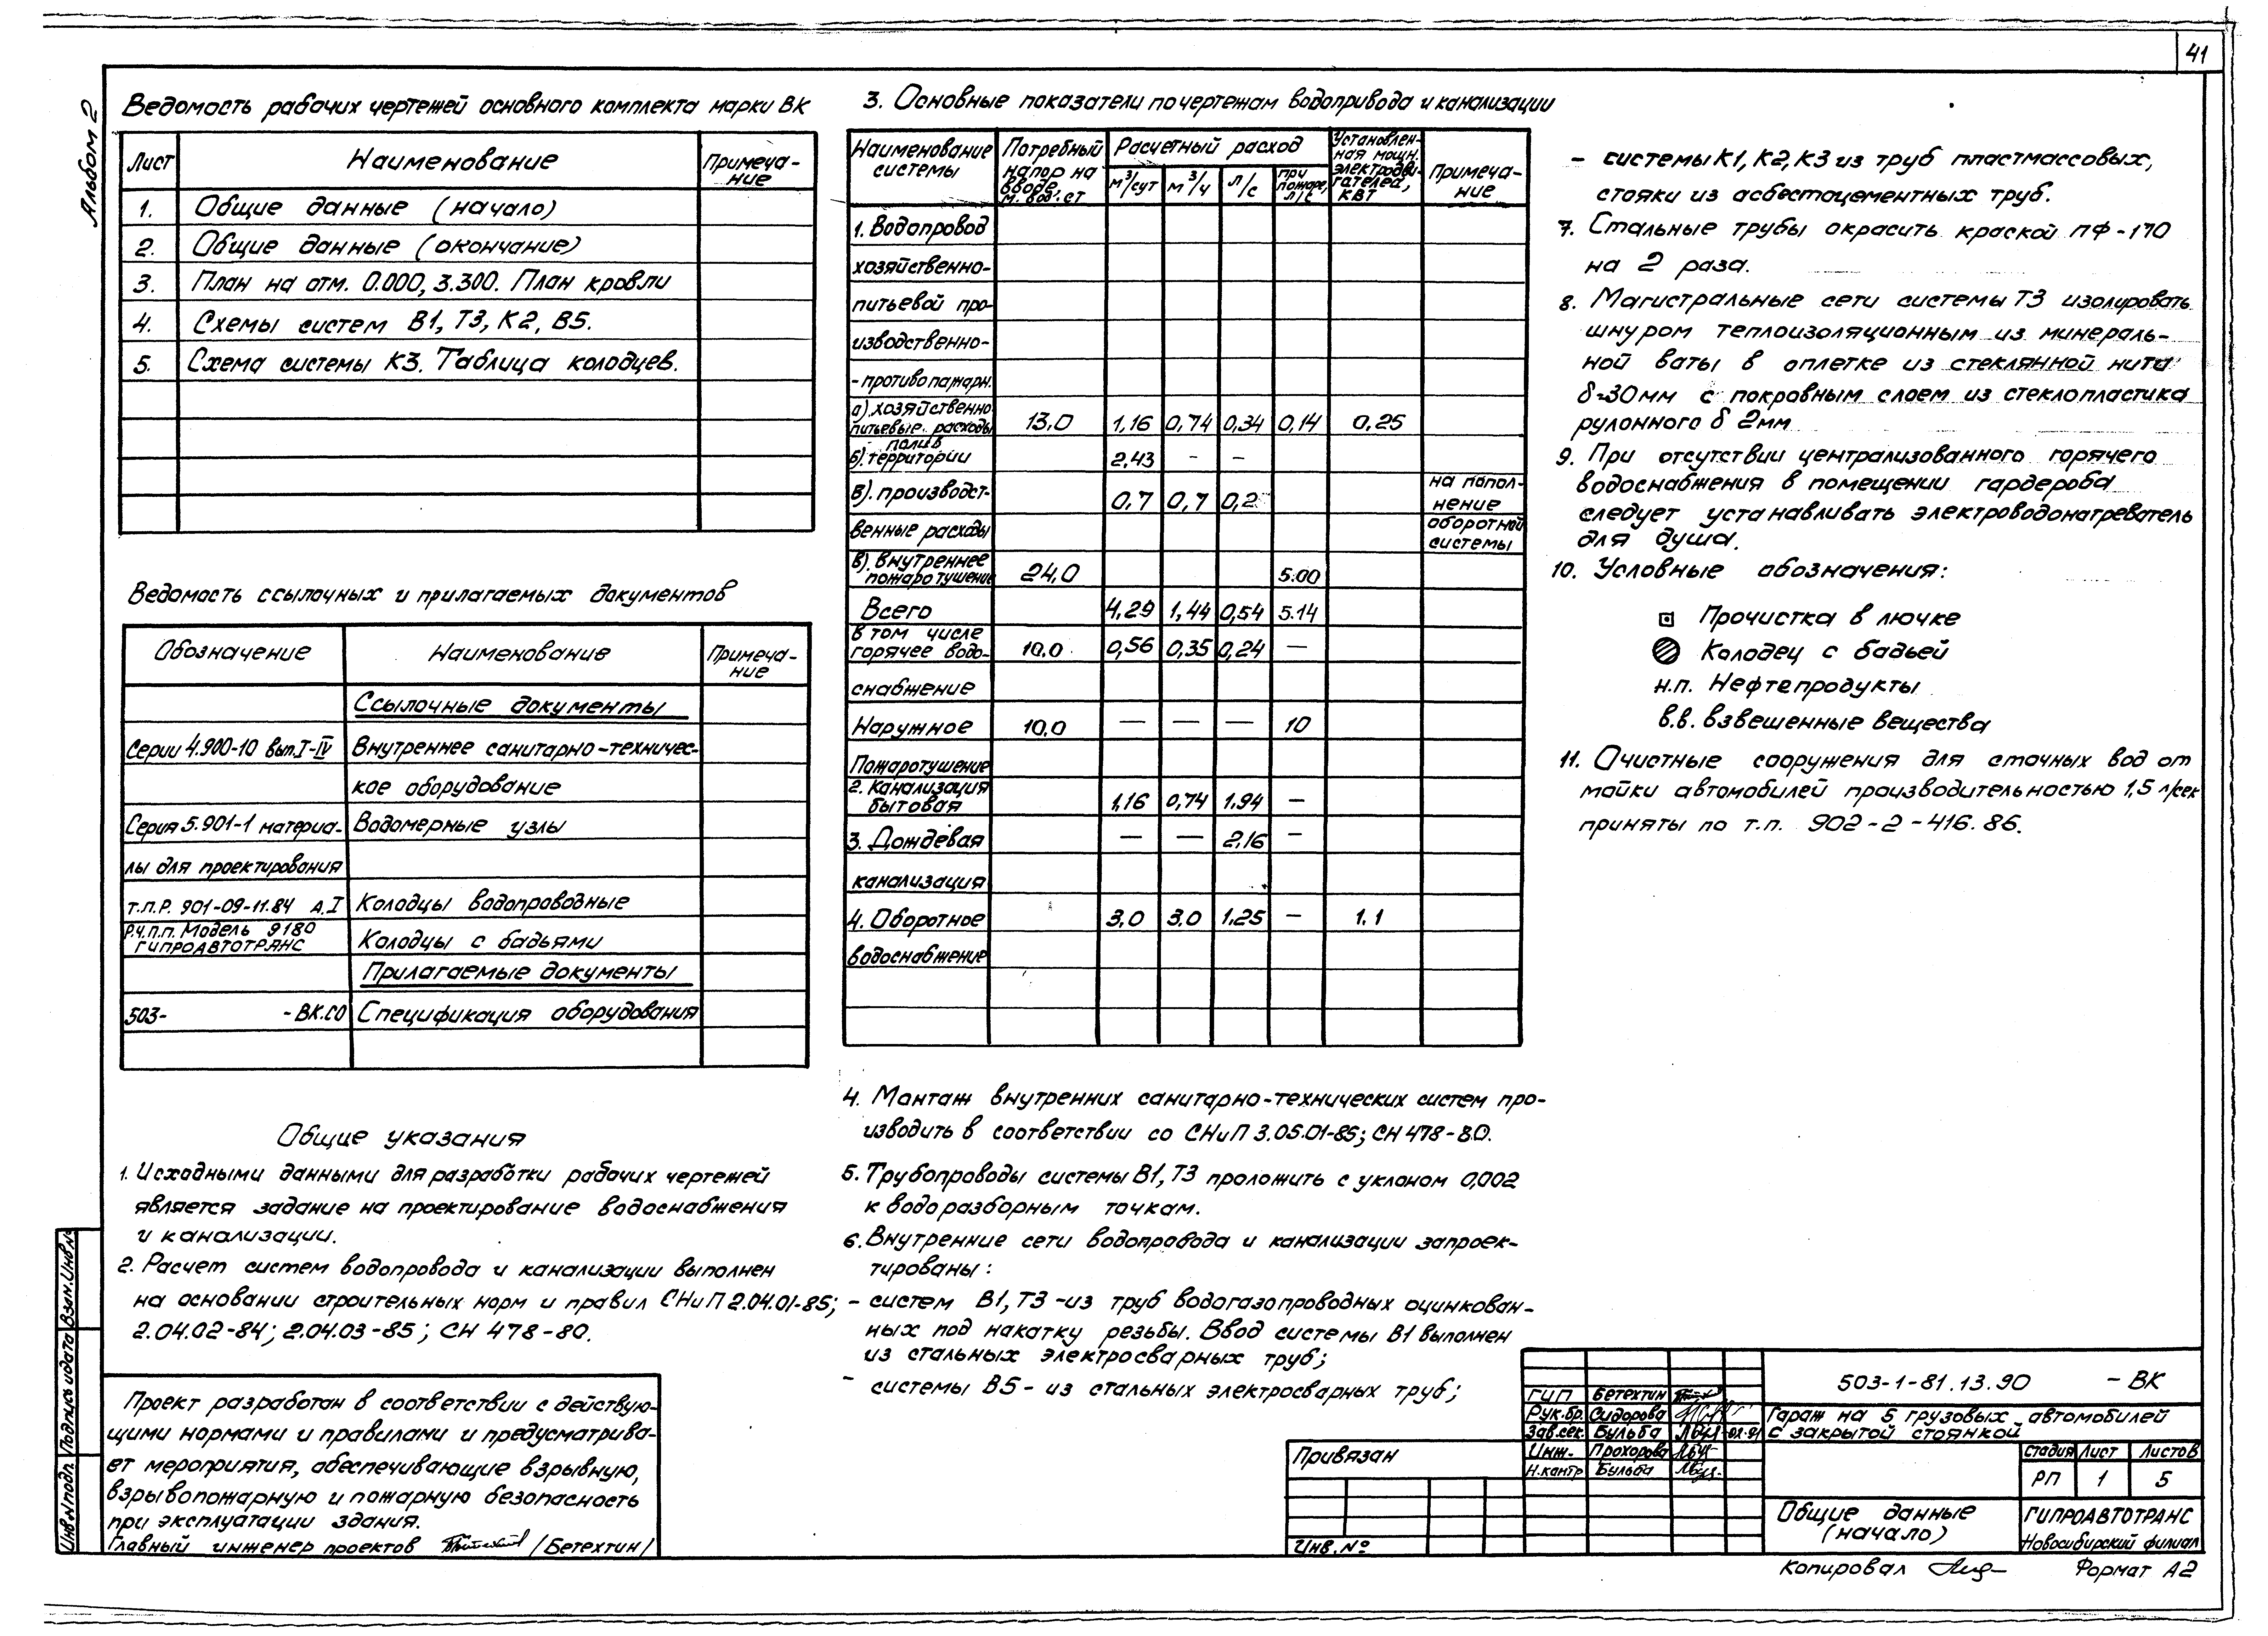 41
Альбом 2
Ведомость рабочих чертежей основного комплекта марки ВК
Лист Наименование Примеча-
ние
1. Общие данные (начало)
2. Общие данные (окончание)
3. План на отм. 0.000, 3.300. План кровли
4. Схемы систем В1, Т3, К2, В5.
5. Схема системы К3. Таблица колодцев.
Ведомость ссылочных и прилагаемых документов
Обозначение Наименование Примеча-
ние
Ссылочные документы
Серии 4.900-10 вып. I-IV Внутреннее санитарно-техничес-
кое оборудование
Серия 5.901-1 материа- Водомерные узлы
лы для проектирования
т.п.р. 901-09-11.84 А.I Колодцы водопроводные
Р.ч.п.п. Модель 9180
ГИПРОАВТОТРАНС Колодцы с бадьями
Прилагаемые документы
503- -ВК.СО Спецификация оборудования
Общие указания
1. Исходными данными для разработки рабочих чертежей
является задание на проектирование водоснабжения
и канализации.
2. Расчет систем водопровода и канализации выполнен
на основании строительных норм и правил СНиП 2.04.01-85;
2.04.02-84; 2.04.03-85; СН 478-80.
Проект разработан в соответствии с действую-
щими нормами и правилами и предусматрива-
ет мероприятия, обеспечивающие взрывную,
взрывопожарную и пожарную безопасность
при эксплуатации здания.
Главный инженер проектов /Бетехтин/
Инв.№ подл. Подпись и дата Взам.Инв.№
3. Основные показатели по чертежам водопривода и канализации
Наименование системы Потребный напор на вводе, м. вод. ст Расчетный расход Установлен-
ная мощн. электродви-
гателей, квт Примеча-
ние
м³/сут м³/ч л/с при пожаре, л/с
1. Водопровод
хозяйственно-
питьевой про-
изводственно-
-противопожарн.
а) хозяйственно
питьевые расходы 13,0 1,16 0,74 0,34 0,14 0,25
полив
б). территории 2,43 – –
в). производст- 0,7 0,7 0,2 на попол-
нение
венные расходы оборотной
системы
в). Внутреннее
пожаротушение 24,0 5.00
Всего 4,29 1,44 0,54 5.14
в том числе
горячее водо- 10.0 0,56 0,35 0,24 —
снабжение
Наружное 10,0 — — — 10
Пожаротушение
2. Канализация
бытовая 1,16 0,74 1,94 –
3. Дождевая — — 2,16 –
канализация
4. Оборотное 3,0 3,0 1,25 – 1.1
водоснабжение
4. Монтаж внутренних санитарно-технических систем про-
изводить в соответствии со СНиП 3.05.01-85; СН 478-80.
5. Трубопроводы системы В1, Т3 проложить с уклоном 0,002
к водоразборным точкам.
6. Внутренние сети водопровода и канализации запроек-
тированы:
- систем В1, Т3 -из труб водогазопроводных оцинкован-
ных под накатку резьбы. Ввод системы В1 выполнен
из стальных электросварных труб;
- системы В5 - из стальных электросварных труб;
- системы К1, К2, К3 из труб пластмассовых,
стояки из асбестоцементных труб.
7. Стальные трубы окрасить краской ПФ-170
на 2 раза.
8. Магистральные сети системы Т3 изолировать
шнуром теплоизоляционным из минераль-
ной ваты в оплетке из стеклянной нити
δ=30мм с покровным слоем из стеклопластика
рулонного δ 2мм
9. При отсутствии централизованного горячего
водоснабжения в помещении гардероба
следует устанавливать электроводонагреватель
для душа.
10. Условные обозначения:
Прочистка в лючке
Колодец с бадьей
н.п. Нефтепродукты
в.в. взвешенные вещества
11. Очистные сооружения для сточных вод от
мойки автомобилей производительностью 1,5 л/сек
приняты по т.п. 902-2-416.86.
Привязан
Инв.№
ГИП Бетехтин
Рук.бр. Сидорова
Зав.сек. Бульба
Инж. Прохорова
Н.контр Бульба
503-1-81.13.90 - ВК
Гараж на 5 грузовых автомобилей
с закрытой стоянкой
Стадия Лист Листов
РП 1 5
Общие данные
(начало)
ГИПРОАВТОТРАНС
Новосибирский филиал
Копировал
Формат А2